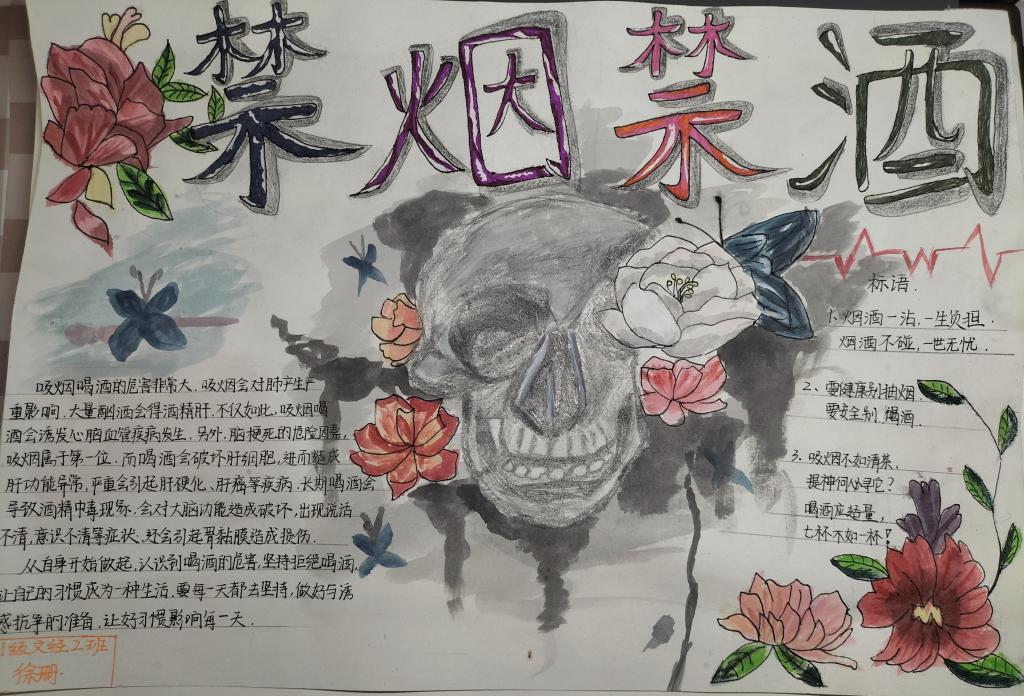 禁烟禁酒
吸烟喝酒的危害非常大.吸烟会对肺产生严
重影响.大量酗酒会得酒精肝.不仅如此,吸烟喝
酒会诱发心脑血管疾病发生.另外,脑梗死的危险因素,
吸烟属于第一位.而喝酒会破坏肝细胞,进而造成
肝功能异常,严重会引起肝硬化、肝癌等疾病.长期喝酒会
导致酒精中毒现象.会对大脑功能造成破坏,出现说话
不清,意识不清等症状.还会引起胃黏膜造成损伤.
从自身开始做起,认识到喝酒的危害,坚持拒绝喝酒,
让自己的习惯成为一种生活.要每一天都去坚持,做好与诱
惑抗争的准备,让好习惯影响每一天.
级文经2班
徐珊.
标语.
1.烟酒一沾,一生负担.
烟酒不碰,一世无忧.
2、要健康别抽烟
要安全别喝酒.
3、吸烟不如清茶,
提神何必寻它?
喝酒应适量,
七杯不如一杯!